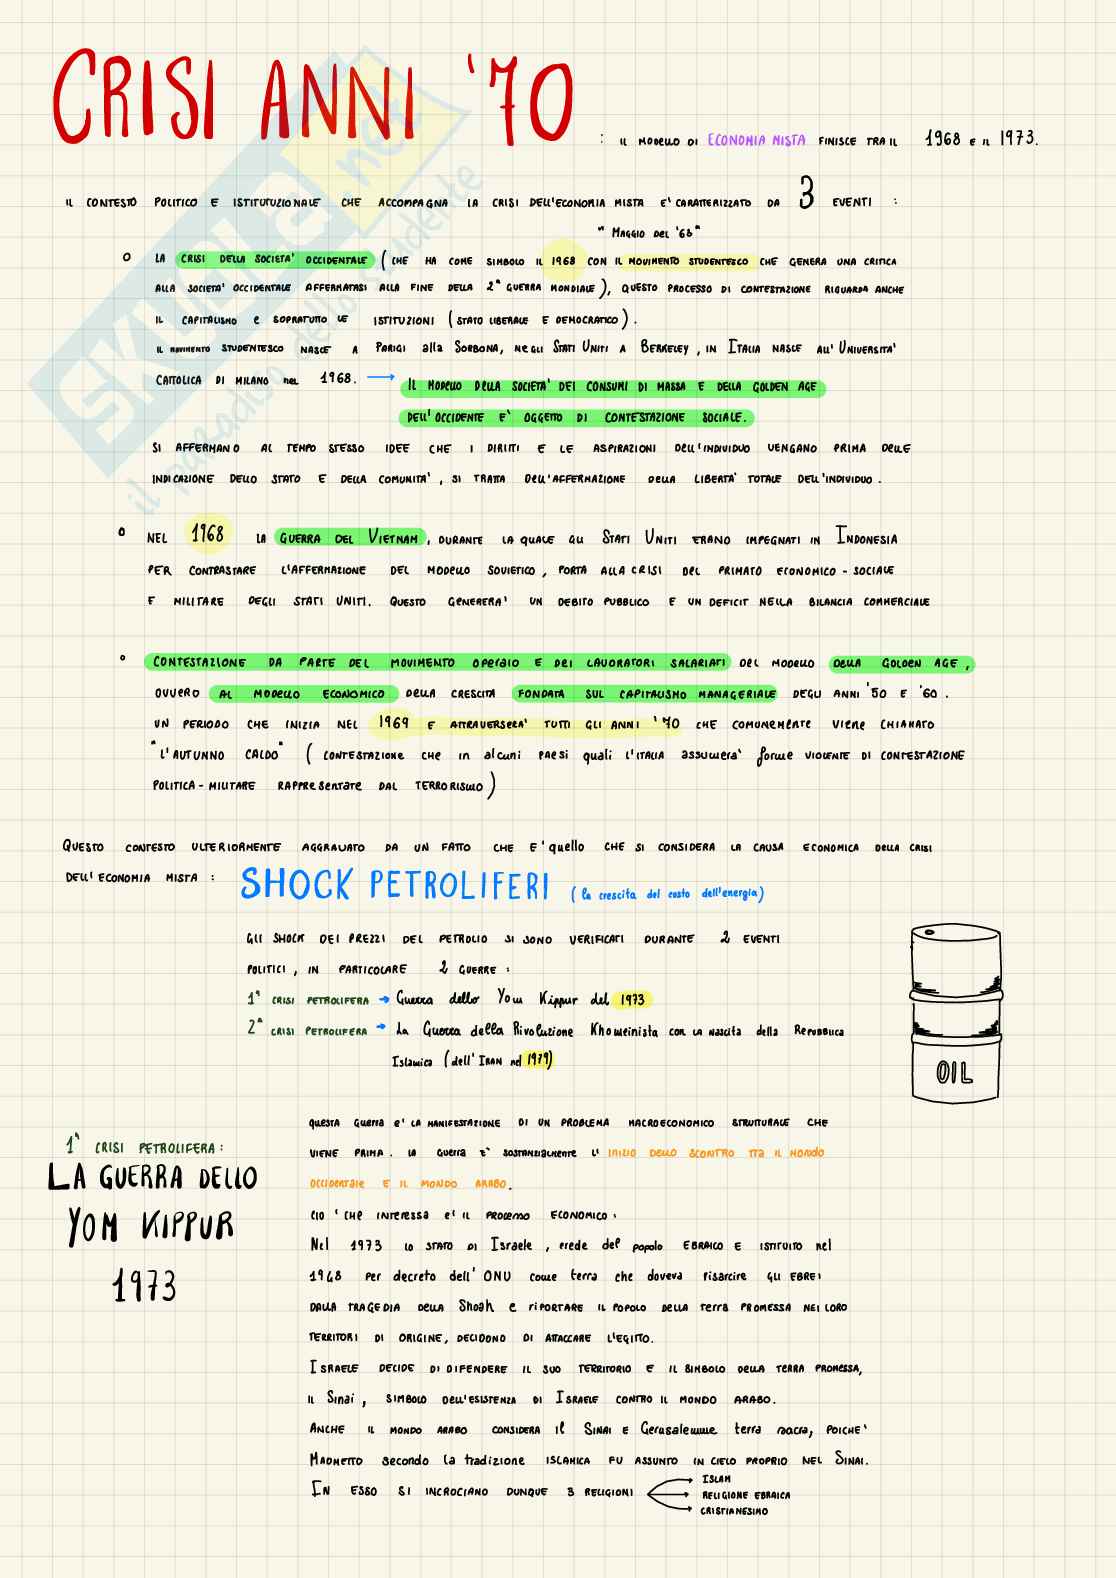 CRISI ANNI '70
: IL MODELLO DI ECONOMIA MISTA FINISCE TRA IL 1968 E IL 1973.
IL CONTESTO POLITICO E ISTITUTUZIONALE CHE ACCOMPAGNA LA CRISI DELL'ECONOMIA MISTA E' CARATTERIZZATO DA 3 EVENTI :
" MAGGIO DEL '68"
O LA CRISI DELLA SOCIETA' OCCIDENTALE (CHE HA COME SIMBOLO IL 1968 CON IL MOVIMENTO STUDENTESCO CHE GENERA UNA CRITICA
ALLA SOCIETA' OCCIDENTALE AFFERMATASI ALLA FINE DELLA 2ª GUERRA MONDIALE), QUESTO PROCESSO DI CONTESTAZIONE RIGUARDA ANCHE
IL CAPITALISMO e SOPRATUTTO LE ISTITUZIONI (STATO LIBERALE E DEMOCRATICO).
IL MOVIMENTO STUDENTESCO NASCE A PARIGI alla SORBONA, NEGLI STATI UNITI A BERKELEY, IN ITALIA NASCE ALL'UNIVERSITA'
CATTOLICA DI MILANO nel 1968. → IL MODELLO DELLA SOCIETA' DEI CONSUMI DI MASSA E DELLA GOLDEN AGE
DELL'OCCIDENTE E' OGGETTO DI CONTESTAZIONE SOCIALE.
SI AFFERMANO AL TEMPO STESSO IDEE CHE I DIRITTI E LE ASPIRAZIONI DELL'INDIVIDUO VENGANO PRIMA DELLE
INDICAZIONE DELLO STATO E DELLA COMUNITA', SI TRATTA DELL'AFFERMAZIONE DELLA LIBERTA' TOTALE DELL'INDIVIDUO.
O NEL 1968 LA GUERRA DEL VIETNAM, DURANTE LA QUALE GLI STATI UNITI ERANO IMPEGNATI IN INDONESIA
PER CONTRASTARE L'AFFERMAZIONE DEL MODELLO SOVIETICO, PORTA ALLA CRISI DEL PRIMATO ECONOMICO - SOCIALE
E MILITARE DEGLI STATI UNITI. QUESTO GENERERA' UN DEBITO PUBBLICO E UN DEFICIT NELLA BILANCIA COMMERCIALE
O CONTESTAZIONE DA PARTE DEL MOVIMENTO OPERAIO E DEI LAVORATORI SALARIATI DEL MODELLO DELLA GOLDEN AGE,
OVVERO AL MODELLO ECONOMICO DELLA CRESCITA FONDATA SUL CAPITALISMO MANAGERIALE DEGLI ANNI '50 E '60.
UN PERIODO CHE INIZIA NEL 1969 E ATTRAVERSERA' TUTTI GLI ANNI '70 CHE COMUNEMENTE VIENE CHIAMATO
"L'AUTUNNO CALDO" (CONTESTAZIONE CHE IN alcuni PAESI quali L'ITALIA assumera' forme VIOLENTE DI CONTESTAZIONE
POLITICA - MILITARE RAPPRESENTATE DAL TERRORISMO)
QUESTO CONTESTO ULTERIORMENTE AGGRAVATO DA UN FATTO CHE E' quello CHE SI CONSIDERA LA CAUSA ECONOMICA DELLA CRISI
DELL'ECONOMIA MISTA : SHOCK PETROLIFERI (la crescita del costo dell'energia)
GLI SHOCK DEI PREZZI DEL PETROLIO SI SONO VERIFICATI DURANTE 2 EVENTI
POLITICI, IN PARTICOLARE 2 GUERRE :
1ª CRISI PETROLIFERA → Guerra dello Yom Kippur del 1973
2ª CRISI PETROLIFERA → La Guerra della Rivoluzione Khomeinista CON LA NASCITA della REPUBBLICA
Islamica (dell'IRAN nel 1979)
OIL
1ª CRISI PETROLIFERA:
LA GUERRA DELLO
YOM KIPPUR
1973
QUESTA GUERRA e' LA MANIFESTAZIONE DI UN PROBLEMA MACROECONOMICO STRUTTURALE CHE
VIENE PRIMA. LA GUERRA E' SOSTANZIALMENTE L' INIZIO DELLO SCONTRO TRA IL MONDO
OCCIDENTALE E IL MONDO ARABO.
CIO' CHE INTERESSA e' IL PROCESSO ECONOMICO:
Nel 1973 LO STATO DI Israele, erede del popolo EBRAICO E ISTITUITO nel
1948 Per decreto dell'ONU come terra che doveva risarcire GLI EBREI
DALLA TRAGEDIA DELLA Shoah e RIPORTARE IL POPOLO DELLA TERRA PROMESSA NEI LORO
TERRITORI DI ORIGINE, DECIDONO DI ATTACCARE L'EGITTO.
ISRAELE DECIDE DI DIFENDERE IL SUO TERRITORIO E IL SIMBOLO DELLA TERRA PROMESSA,
IL Sinai, SIMBOLO DELL'ESISTENZA DI ISRAELE CONTRO IL MONDO ARABO.
ANCHE IL MONDO ARABO CONSIDERA il SINAI E Gerusalemme terra sacra, POICHE'
MAOMETTO secondo la tradizione ISLAMICA FU ASSUNTO IN CIELO PROPRIO NEL SINAI.
IN ESSO SI INCROCIANO DUNQUE 3 RELIGIONI
ISLAM
RELIGIONE EBRAICA
CRISTIANESIMO
SKUOLA.net
il paradiso dello studente